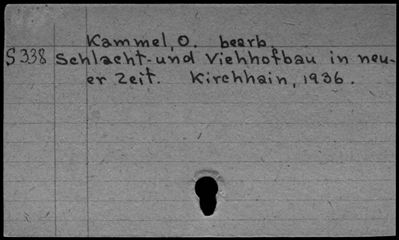 Kammel, O. bearb.
S 338 Schlacht- und Viehhofbau in neu-
er Zeit. Kirchhain, 1936.